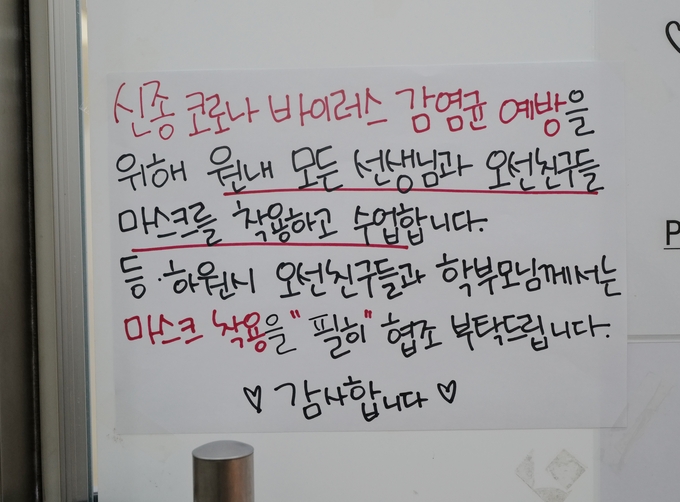 신종 코로나 바이러스 감염균 예방을
위해 원내 모든 선생님과 오선친구들
마스크를 착용하고 수업합니다.
등·하원시 오선친구들과 학부모님께서는
마스크 착용을 "필히" 협조 부탁드립니다.
♡ 감사합니다 ♡
P